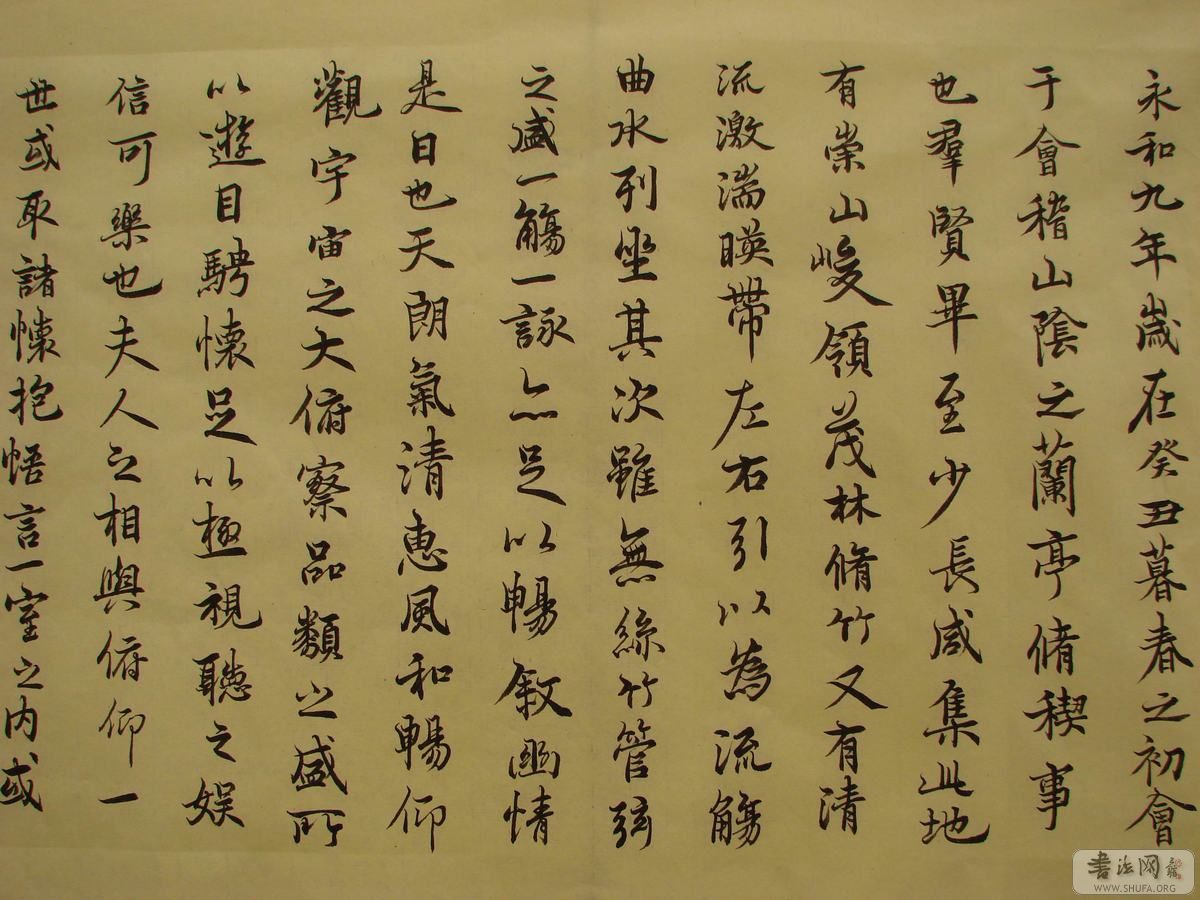 永和九年歲在癸丑暮春之初會
于會稽山陰之蘭亭脩稧事
也羣賢畢至少長咸集此地
有崇山峻領茂林脩竹又有清
流激湍暎帶左右引以為流觴
曲水列坐其次雖無絲竹管弦
之盛一觴一詠亦足以暢敘幽情
是日也天朗氣清惠風和暢仰
觀宇宙之大俯察品類之盛所
以遊目騁懷足以極視聽之娛
信可樂也夫人之相與俯仰一
世或取諸懷抱悟言一室之內或
書法网
WWW.SHUFA.ORG